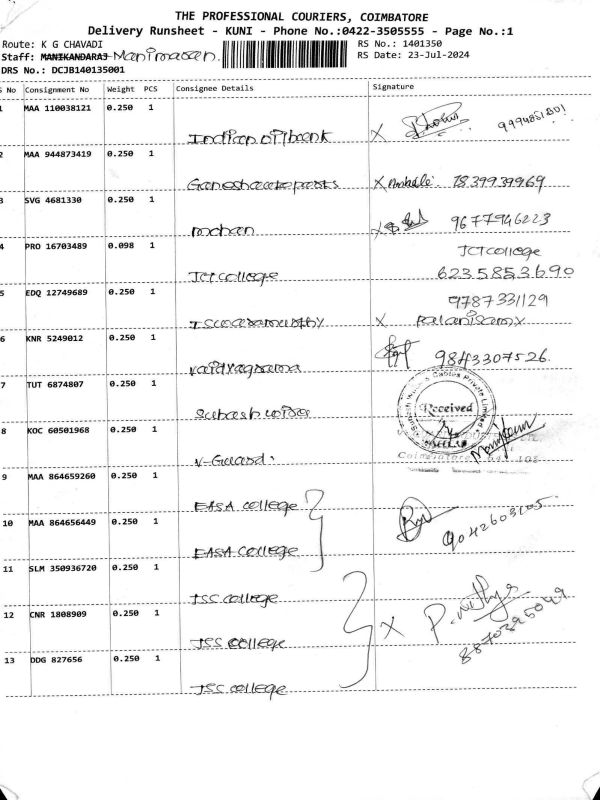 THE PROFESSIONAL COURIERS, COIMBATORE
Delivery Runsheet - KUNI - Phone No.:0422-3505555 - Page No.:1
Route: K G CHAVADI RS No.: 1401350
Staff: MANIKANDARAJ Manimaran. RS Date: 23-Jul-2024
DRS No.: DCJB140135001
S No Consignment No Weight PCS Consignee Details Signature
1 MAA 110038121 0.250 1
Indian oil bank X
2 MAA 944873419 0.250 1
X 7839939969
3 SVG 4681330 0.250 1
mohan X 9677946223
4 PRO 16703489 0.098 1 JCT College
JCT College 6235853690
5 EDQ 12749689 0.250 1 9787331129
X Palanisamy
6 KNR 5249012 0.250 1
9843307526.
7 TUT 6874807 0.250 1
Received
8 KOC 60501968 0.250 1
V-Guard.
9 MAA 864659260 0.250 1
EASA College
10 MAA 864656449 0.250 1
EASA College
11 SLM 350936720 0.250 1
JSS College
12 CNR 1808909 0.250 1
JSS College X
13 DDG 827656 0.250 1
JSS College